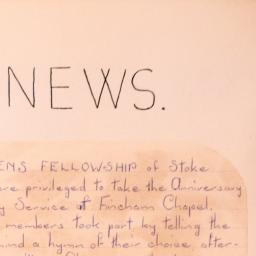 NEWS.
ENS FELLOWSHIP of Stoke
are privileged to take the Anniversary
y Service at Fincham Chapel.
members took part by telling the
hind a hymn of their choice, after-